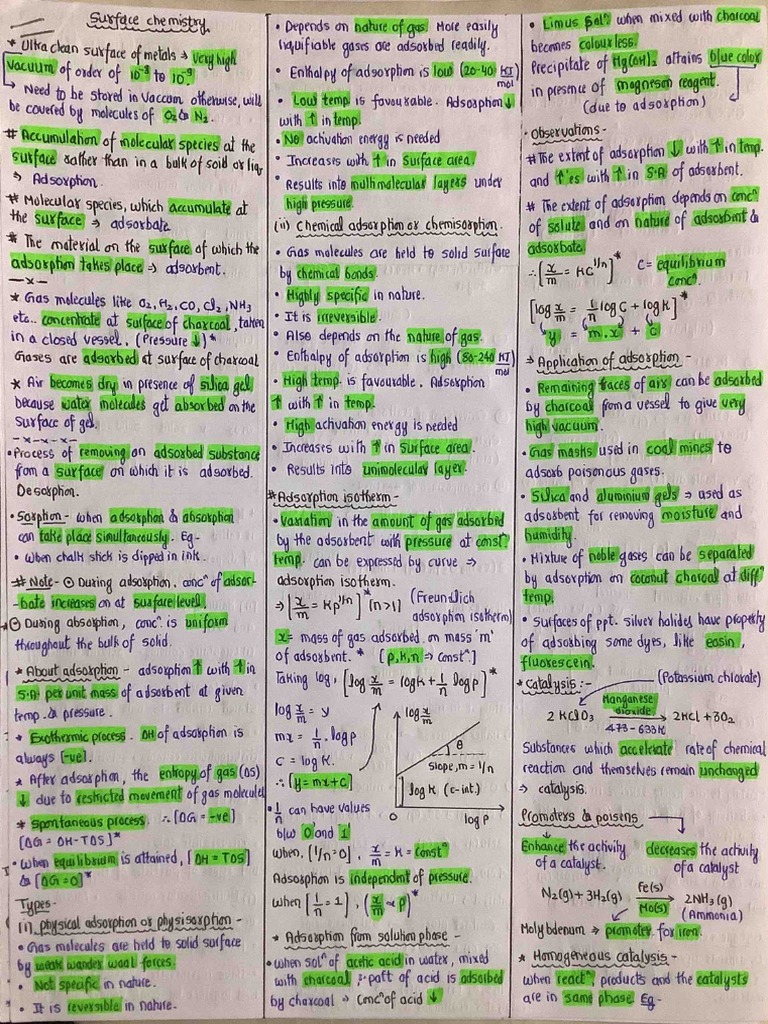 Surface chemistry
* Ultra clean surface of metals → very high
vacuum of order of 10⁻⁸ to 10⁻⁹.
→ Need to be stored in vaccum otherwise, will
be covered by molecules of O₂ & N₂.
# Accumulation of molecular species at the
surface rather than in a bulk of soid or liq
⇒ Adsorption.
# Molecular species, which accumulate at
the surface ⇒ adsorbate
* The material on the surface of which the
adsorption takes place ⇒ adsorbent.
—x—
* Gas molecules like O₂, H₂, CO, Cl₂, NH₃
etc.. concentrate at surface of charcoal, taken
in a closed vessel. (Pressure ↓)*
Gases are adsorbed at surface of charcoal
* Air becomes dry in presence of silica gel
because water molecules get absorbed on the
surface of gel.
-x-x-x-x-
• Process of removing an adsorbed substance
from a surface on which it is adsorbed.
Desorption.
• Sorption - when adsorption & absorption
can take place simultaneously. Eg -
• when chalk stick is dipped in ink.
# Note - ⊙ During adsorption, concⁿ of adsor-
-bate increases on at surface level.
* ⊙ During absorption, concⁿ. is uniform
throughout the bulk of solid.
* About adsorption - adsorption ↑ with ↑ in
S.A. per unit mass of adsorbent at given
temp. & pressure.
* Exothermic process. ΔH of adsorption is
always [-ve].
* After adsorption, the entropy of gas (ΔS)
↓ due to restricted movement of gas molecules
* spontaneous process. ∴ [ΔG = -ve]
[ΔG = ΔH-TΔS]*
• when equilibrium is attained, [ΔH = TΔS]
& [ΔG=0]*
Types -
(i) physical adsorption or physisorption -
• Gas molecules are held to solid surface
by weak wander waal forces.
• Not specific in nature.
• It is reversible in nature.
• Depends on nature of gas. More easily
liquifiable gases are adsorbed readily.
• Enthalpy of adsorption is low (20-40 KJ/mol)
• Low temp. is favourable. Adsorption ↓
with ↑ in temp.
• No activation energy is needed
• Increases with ↑ in surface area.
• Results into multimolecular layers under
high pressure.
(ii) Chemical adsorption or chemisorption.
• Gas molecules are held to solid surface
by chemical bonds.
• Highly specific in nature.
• It is irreversible.
• Also depends on the nature of gas.
• Enthalpy of adsorption is high (80-240 KJ/mol)
• High temp. is favourable. Adsorption
↑ with ↑ in temp.
• High activation energy is needed
• Increases with ↑ in surface area.
• Results into unimolecular layer.
# Adsorption isotherm -
• variation in the amount of gas adsorbed
by the adsorbent with pressure at constⁿ
temp. can be expressed by curve ⇒
adsorption isotherm.
⇒ [x/m = Kp^1/n]* [n>1] (Freundlich
adsorption isotherm)
x = mass of gas adsorbed on mass 'm'
of adsorbent. * [p, k, n ⇒ Constⁿ]
Taking log, [log x/m = log K + 1/n log p]*
log x/m = y
mx = 1/n . log p
C = log K.
∴ [y = mx + C]
log x/m
θ
slope, m = 1/n
log K (c-int.)
0
log P
• 1/n can have values
b/w 0 and 1
when, [1/n = 0], x/m = K = Constⁿ
Adsorption is independent of pressure.
when [1/n = 1], (x/m ∝ p)*
* Adsorption from solution phase -
• when solⁿ of acetic acid in water, mixed
with charcoal : part of acid is adsorbed
by charcoal → Concⁿ of acid ↓
• Limus Solⁿ when mixed with charcoal
becomes colourless.
Precipitate of Mg(OH)₂ attains blue color
in presence of magneson reagent.
(due to adsorption)
• Observations -
# The extent of adsorption ↓ with ↑ in temp.
and ↑'es with ↑ in S.A of adsorbent.
# The extent of adsorption depends on concⁿ
of solute and on nature of adsorbent &
adsorbate.
∴ [x/m = KC^1/n]* C = equilibrium
concⁿ.
[log x/m = 1/n log C + log K]*
y = m.x + C
⇒ Application of adsorption -
• Remaining traces of air can be adsorbed
by charcoal from a vessel to give very
high vacuum.
• Gas masks used in coal mines to
adsorb poisonous gases.
• Silica and aluminium gels ⇒ used as
adsorbent for removing moisture and
humidity.
• Mixture of noble gases can be separated
by adsorption on coconut charcoal at diffⁿ
temp.
• Surfaces of ppt. silver halides have property
of adsorbing some dyes, like eosin,
fluorescein.
* Catalysis :- (Potassium chlorate)
2 KClO₃ Manganese dioxide → 473-633K 2KCl + 3O₂
Substances which accelerate rate of chemical
reaction and themselves remain unchanged
⇒ catalysis.
Promoters & poisens
Enhance the activity
of a catalyst.
decreases the activity
of a catalyst
N₂(g) + 3H₂(g) Fe(s) → Mo(s) 2NH₃(g)
(Ammonia)
Molybdenum ⇒ promoter for iron.
* Homogeneous catalysis -
when reactⁿ, products and the catalysts
are in same phase. Eg-